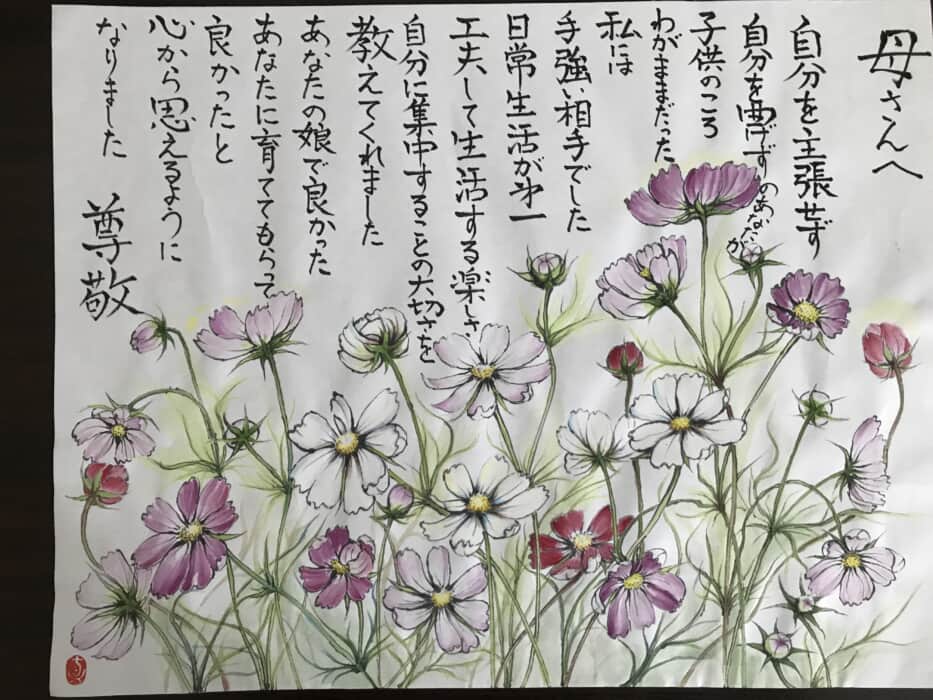 母さんへ
自分を主張せず
自分を曲げずのあなたが
子供のころ
わがままだった
私には
手強い相手でした
日常生活が才一
工夫して生活する楽しさ
自分に集中することの大切さを
教えてくれました
あなたの娘で良かった
あなたに育ててもらって
良かったと
心から思えるように
なりました
尊敬